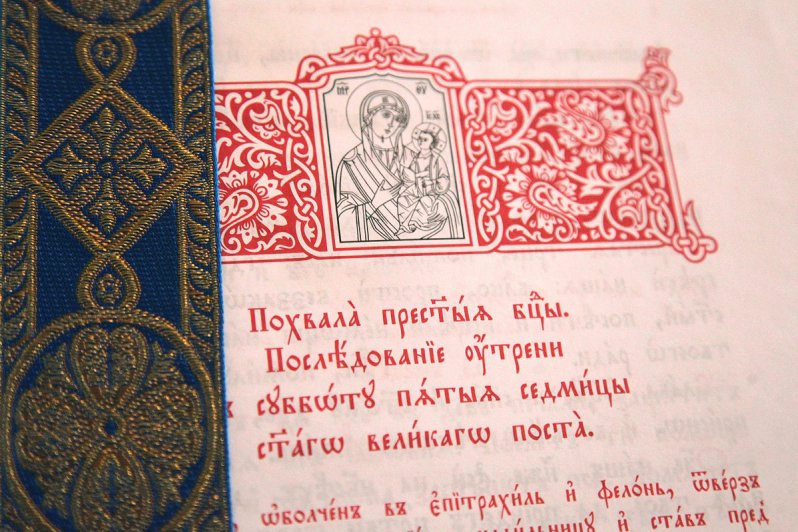 М҃Р Ѳ҃У
Похвала̀ прест҃ы́ѧ бц҃ы.
Послѣ́дованїе ᲂу҆́трени
в суббѡ́ту пѧ́тыѧ седми́цы
ст҃а́гѡ вели́кагѡ поста̀.
ѡ҆болче́нъ въ є҆пїтрахи́ль и҆ фело́нь, ѿве́рзъ
и҆ ста́въ пред